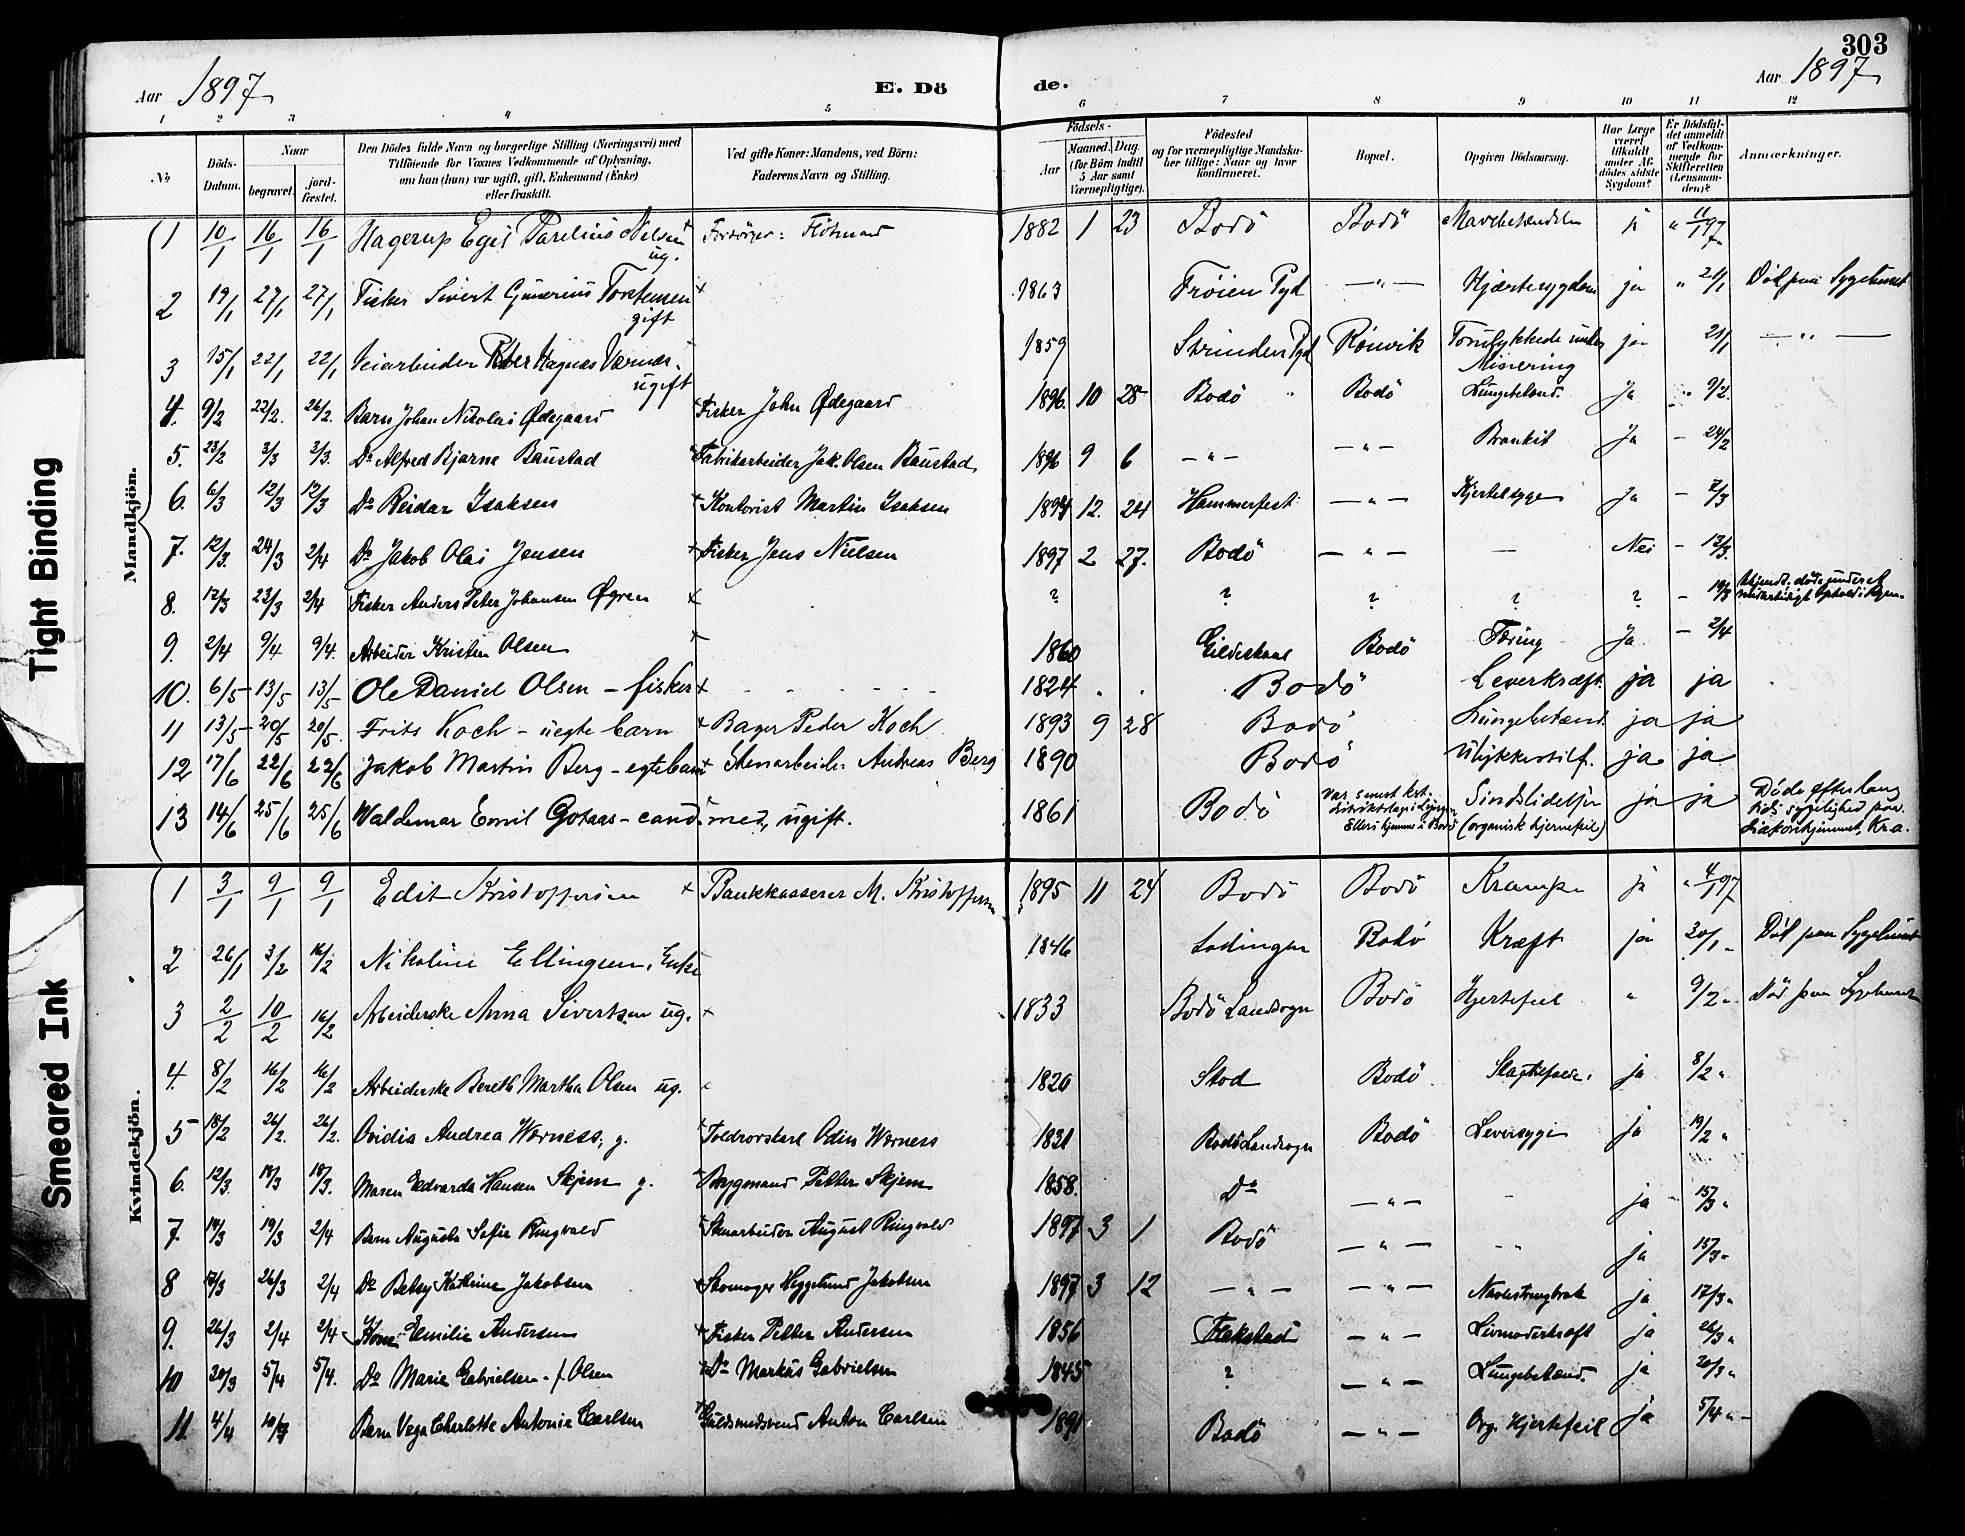 303
Aar 1897
E. Dö
de.
Aar 1897
1 2 3 4 5 6 7 8 9 10 11 12
№
Döds-Datum.
Naar
begravet.
jord-fæstet.
Den Dödes fulde Navn og borgerlige Stilling (Næringsvei) med
Tilföiende for Voxnes Vedkommende af Oplysning,
om han (hun) var ugift, gift, Enkemand (Enke)
eller fraskilt.
Ved gifte Koner: Mandens, ved Börn:
Faderens Navn og Stilling.
Födsels-
Aar
Maaned. Dag.
(for Börn indtil
5 Aar samt
Værnepligtige).
Födested
og for værnepligtige Mandska-
ber tillige: Naar og hvor
konfirmeret.
Bopæl.
Opgiven Dödsaarsag.
Har Læge
været
tilkaldt
under Af-
dödes sidste
Sygdom?
Er Dödsfal-
det anmeldt
af Vedkom-
mende for
Skifteretten
(Lensman-
den)?
Anmærkninger.
Mandkjön.
1 10/1 16/1 16/1 Hagerup Egil Parelius Nilsen ug. 1882 1 23 Bodö Bodö Mavebetændelse ja " 11/1 97
2 19/1 27/1 27/1 Fisker Sivert Gunerius Torstensen gift 1863 Fröien Pgd — " — Hjærtesygdom ja " 21/1 Död paa Sygehuset
3 15/1 22/1 22/1 Veiarbeider Peter Hagnæs Værnes ugift 1859 Strinden Pgd Rönvik Forulykkede under Minering ja 21/1 — " —
4. 9/2 22/2. 26/2. Barn Johan Nikolai Ødegaard Fisker John Ødegaard 1896. 10 28 Bodö Bodö Lungebetænd. Ja " 9/2.
5. 23/2 3/3 3/3. Do Alfred Bjarne Baustad Fabrikarbeider Jak. Olsen Baustad 1896 9 6 — " — — " — Bronkit Ja — 24/2
6. 6/3 12/3 12/3 Do Reidar Isaksen Kontorist Martin Isaksen 1894 12. 24 Hammerfest — " — Kjertelsyge Ja — 7/3
7. 12/3. 24/3 2/4 Do Jakob Olai Jensen Fisker Jens Nielsen 1897 2 27. Bodö — " — — Nei — 13/3.
8. 12/3 23/3 2/4 Fisker Anders Peter Johansen Øgren ? ? ? ? ? — 19/3
9. 2/4 9/4 9/4. Arbeider Kristen Olsen 1860 Gildeskaal Bodö Tæring Ja — 2/4
10. 6/5 13/5 13/5 Ole Daniel Olsen – fisker 1824 Bodö Leverkræft. ja ja
11 13/5 20/5 20/5. Frits Koch – uegte barn Bager Peder Koch 1893 9 28 Bodö Lungebetænd. ja ja
12 17/6 22/6 22/6 Jakob Martin Berg – egte barn Stenarbeider Andreas Berg 1890 Bodö Ulykkestilf. ja ja
13 14/6 25/6 25/6 Waldemar Emil Gotaas – cand. med., ugift. 1861 Bodö Var senest kst. distriktslæge i Lyngen Ellers hjemme i Bodö Sindslidelse (organisk hjernefeil) ja ja Döde efter lang tids sygelighed paa diakonhjemmet, Kra.
Kvindekjön.
1 3/1 9/1 9/1 Edit Kristoffersen Bankkasserer M. Kristoffersen 1895 11 24 Bodö Bodö Krampe ja " 4/1 97
2 26/1 3/2 16/2 Nikoline Ellingsen, Enke 1846 Lodingen Bodö Kræft ja 30/1 Död paa Sygehuset
3 2/2 10/2 16/2 Arbeiderske Anna Sivertsen ug. 1833 Bodö Landsogn Bodö Hjertefeil " 9/2 Död paa Sygehuset
4. 8/2 16/2 16/2 Arbeiderske Bereth Martha Olsen ug. 1820 Stod Bodö. ja 8/2 "
5 18/2 26/2. 26/2. Ovidia Andrea Werness, g. Toldrorskarl Odin Werness 1831 Bodö Landsogn Bodö Leversyge ja 19/2 "
6. 12/3. 18/3 18/3. Maren Edvarda Hansen Skjem g. Brygmand Petter Skjem 1858. Do — " — ja 15/3 "
7. 14/3 19/3 2/4 Barn Augusta Sofie Ringvald Stenarbeider August Ringvald 1897 3 1 Bodö — " — ja 15/3 "
8 17/3 26/3 2/4 Do Betsy Kathrine Jakobsen Skomager Heggelund Jakobsen 1897 3 12 — " — — " — ja 17/3 "
9. 26/3 2/4 2/4 Kone Emilie Andersen Fisker Petter Andersen 1856 Flakstad — " — Livmoderkraft ja 26/3 "
10 30/3 5/4 5/4. Do Marie Gabrielsen - f. Olsen Do Markus Gabrielsen 1845 ? — " — Lungebetænd. ja 20/3 "
11. 4/4 10/4 Barn Vega Charlotte Antonie Carlsen Guldsmedsvend Anton Carlsen 1891 Bodö — " — Org. Hjertefeil ja 5/4 " –
Tight Binding
Smeared Ink